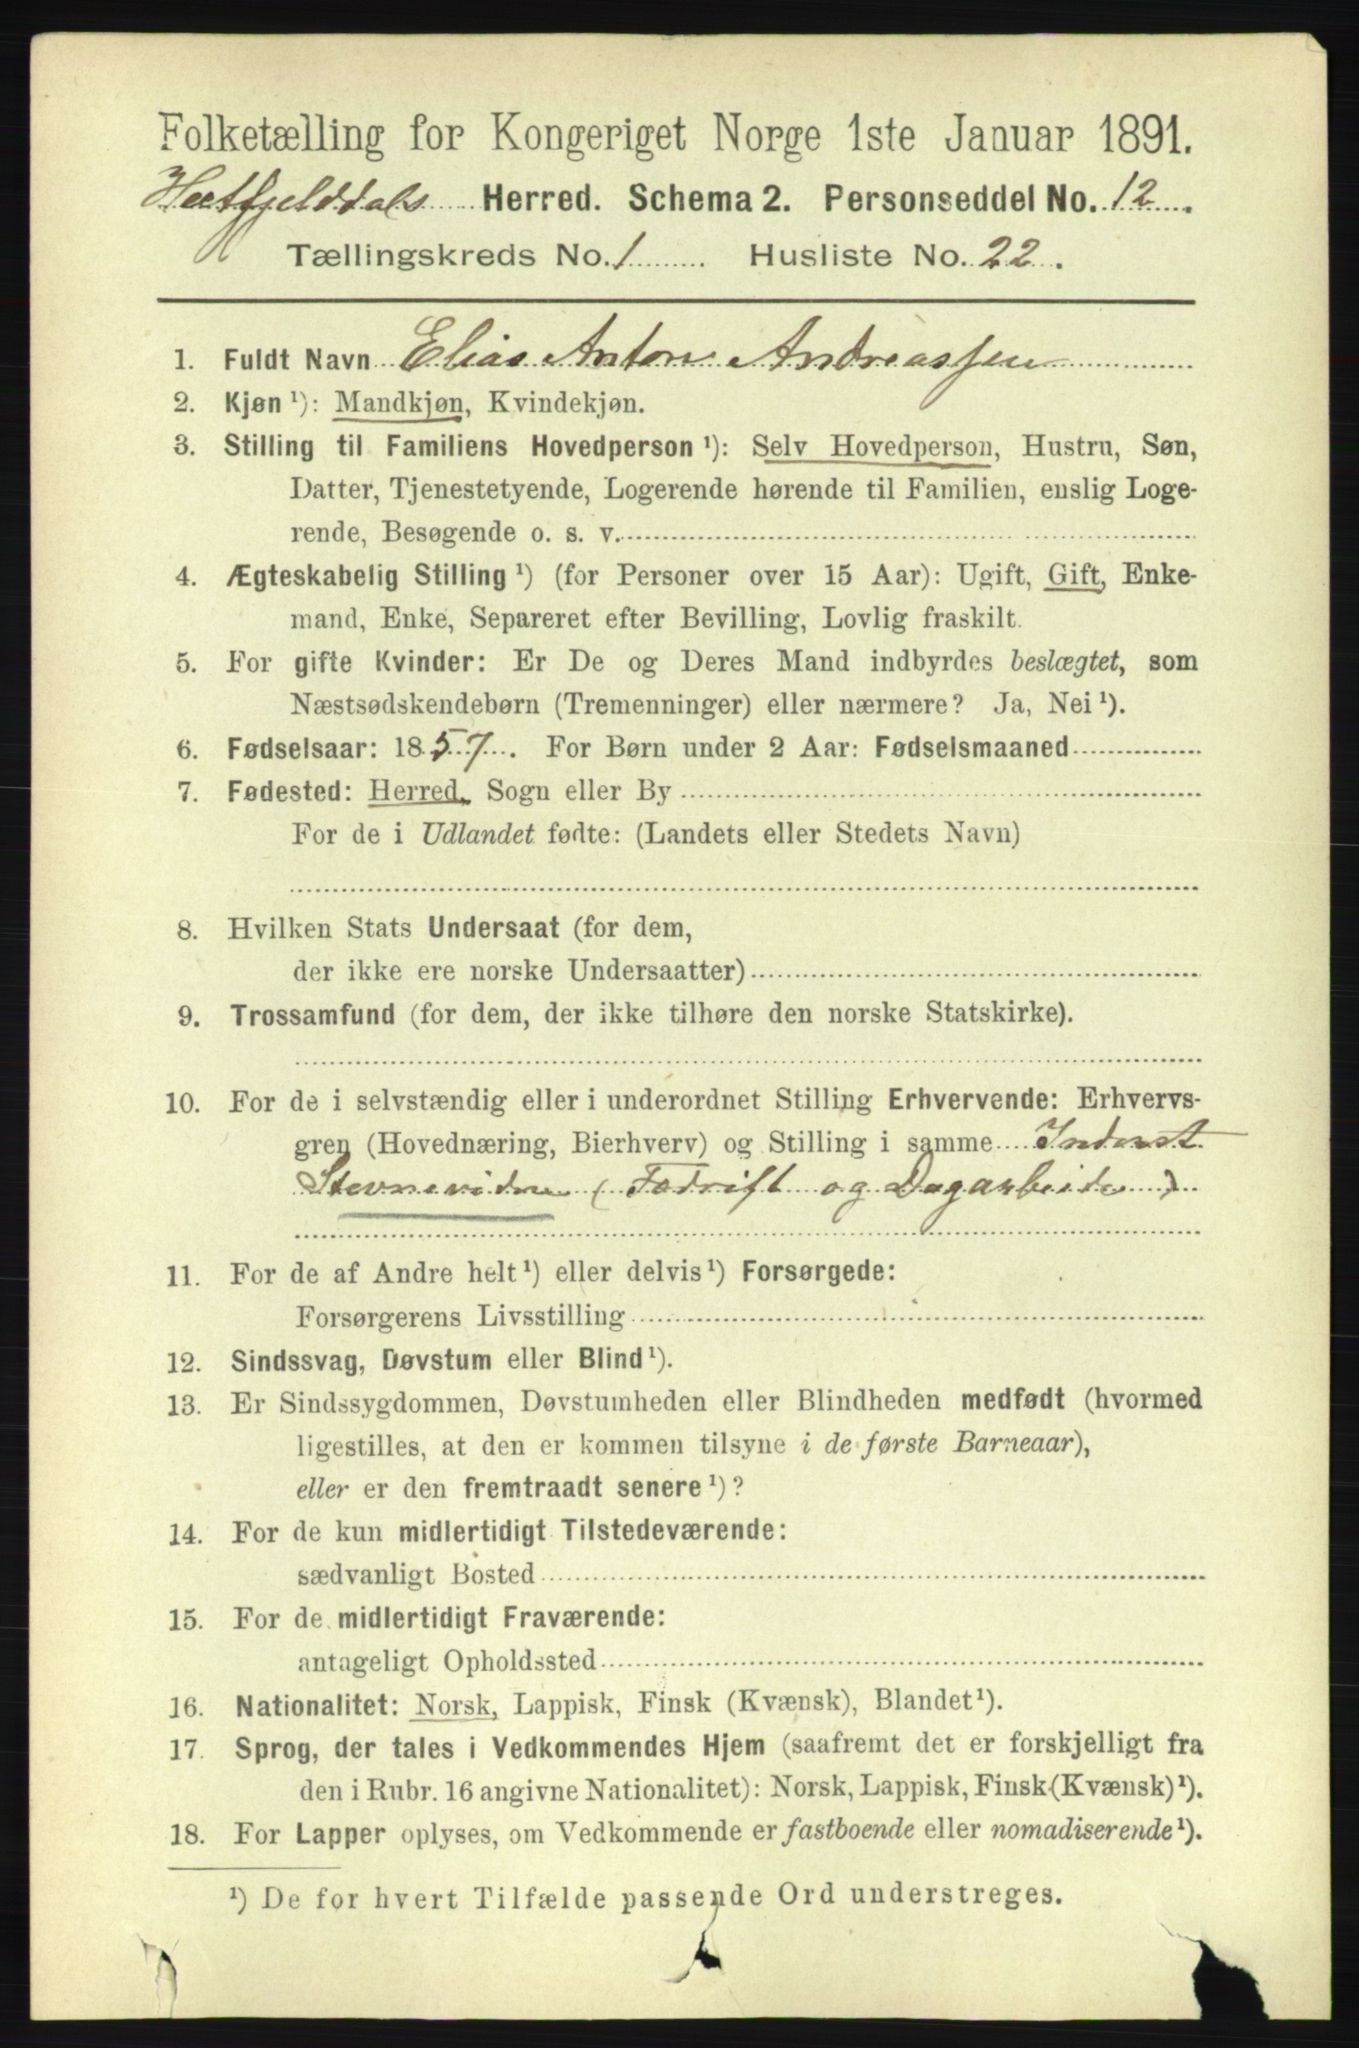 Folketælling for Kongeriget Norge 1ste Januar 1891.
Hatfjelddals Herred. Schema 2. Personseddel No. 12.
Tællingskreds No. 1 Husliste No. 22.
1. Fuldt Navn Elias Anton Andreassen
2. Kjøn ¹): Mandkjøn, Kvindekjøn.
3. Stilling til Familiens Hovedperson ¹): Selv Hovedperson, Hustru, Søn,
Datter, Tjenestetyende, Logerende hørende til Familien, enslig Loge-
rende, Besøgende o. s. v.
4. Ægteskabelig Stilling ¹) (for Personer over 15 Aar): Ugift, Gift, Enke-
mand, Enke, Separeret efter Bevilling, Lovlig fraskilt.
5. For gifte Kvinder: Er De og Deres Mand indbyrdes beslægtet, som
Næstsødskendebørn (Tremenninger) eller nærmere? Ja, Nei ¹).
6. Fødselsaar: 1857. For Børn under 2 Aar: Fødselsmaaned
7. Fødested: Herred, Sogn eller By
For de i Udlandet fødte: (Landets eller Stedets Navn)
8. Hvilken Stats Undersaat (for dem,
der ikke ere norske Undersaatter)
9. Trossamfund (for dem, der ikke tilhøre den norske Statskirke).
10. For de i selvstændig eller i underordnet Stilling Erhvervende: Erhvervs-
gren (Hovednæring, Bierhverv) og Stilling i samme Inderst
Stevnevidne (Fædrift og Dagarbeide)
11. For de af Andre helt ¹) eller delvis ¹) Forsørgede:
Forsørgerens Livsstilling
12. Sindssvag, Døvstum eller Blind ¹).
13. Er Sindssygdommen, Døvstumheden eller Blindheden medfødt (hvormed
ligestilles, at den er kommen tilsyne i de første Barneaar),
eller er den fremtraadt senere ¹)?
14. For de kun midlertidigt Tilstedeværende:
sædvanligt Bosted
15. For de midlertidigt Fraværende:
antageligt Opholdssted
16. Nationalitet: Norsk, Lappisk, Finsk (Kvænsk), Blandet ¹).
17. Sprog, der tales i Vedkommendes Hjem (saafremt det er forskjelligt fra
den i Rubr. 16 angivne Nationalitet): Norsk, Lappisk, Finsk (Kvænsk) ¹).
18. For Lapper oplyses, om Vedkommende er fastboende eller nomadiserende ¹).
¹) De for hvert Tilfælde passende Ord understreges.